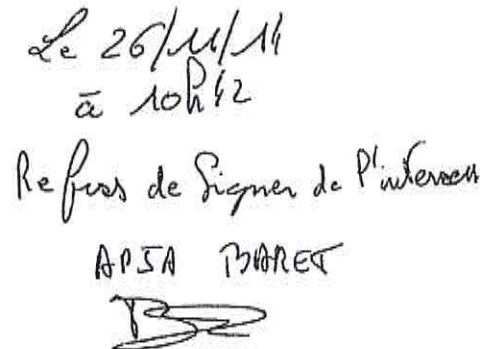 Le 26/11/14
à 10h42
Refus de Signer de l'intéressé
APJA BARET